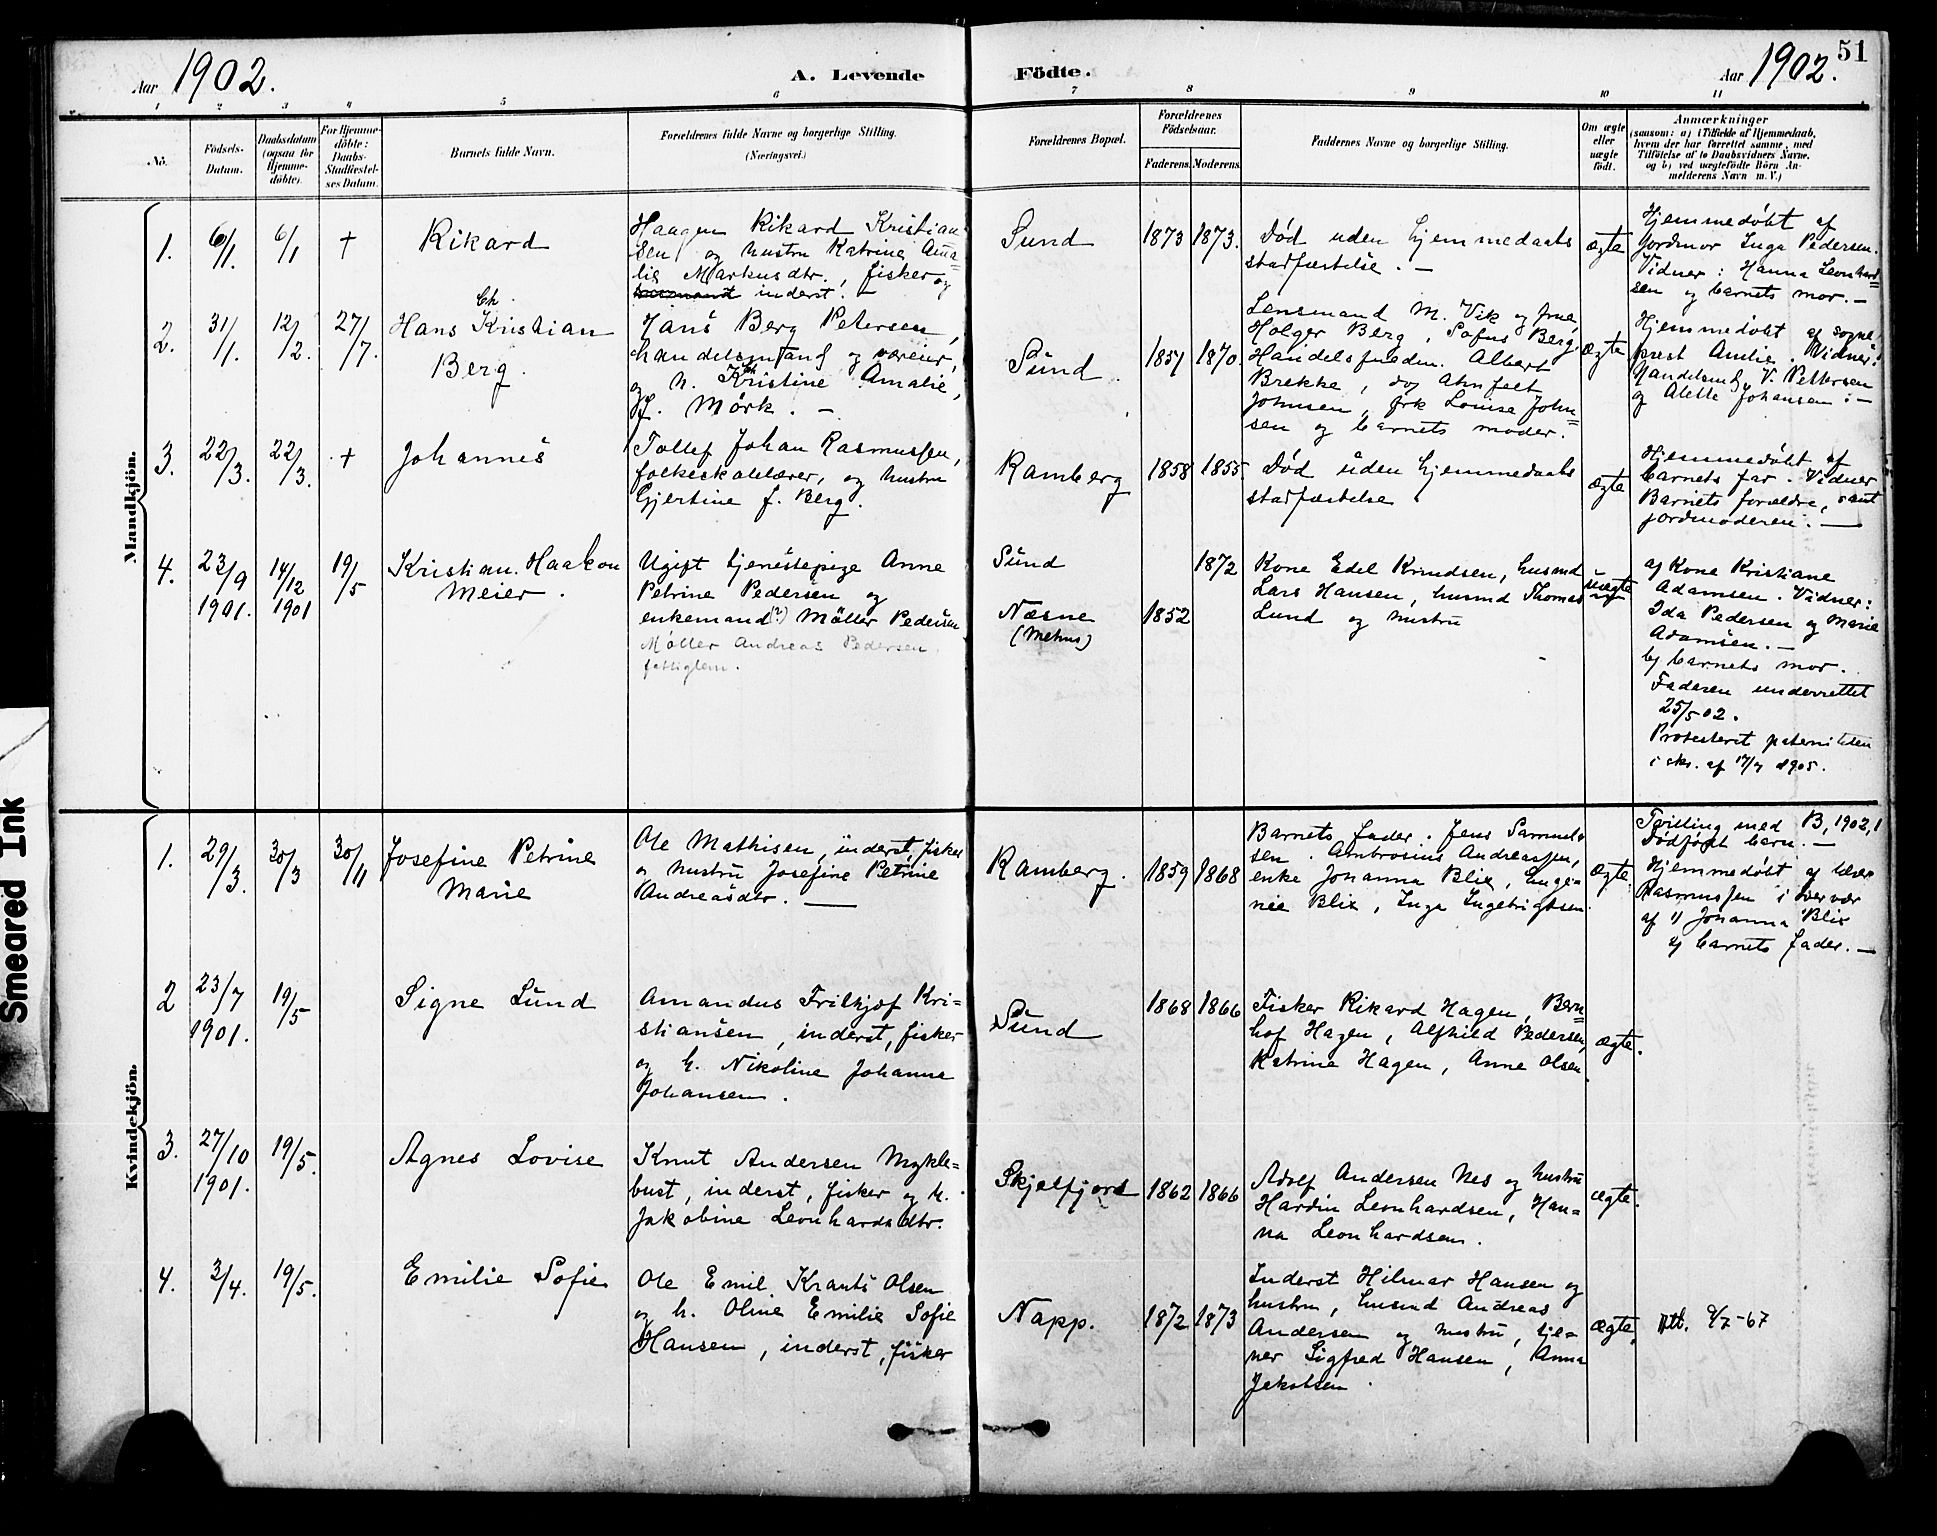 Aar 1902.
A. Levende
Födte.
Aar 1902.
51
1 2 3 4 5 6 7 8 9 10 11
No.
Födsels-
Datum.
Daabsdatum
(ogsaa for
Hjemme-
döbte).
For Hjemme-
döbte:
Daabs-
Stadfæstel-
ses Datum.
Barnets fulde Navn.
Forældrenes fulde Navne og borgerlige Stilling.
(Næringsvei.)
Forældrenes Bopæl.
Forældrenes
Födselsaar.
Faderens.
Moderens.
Faddernes Navne og borgerlige Stilling.
Om ægte
eller
uægte
födt.
Anmærkninger
(saasom: a) i Tilfælde af Hjemmedaab,
hvem der har forrettet samme, med
Tilföielse af to Daabsvidners Navne,
og b) ved uægtefödte Börn An-
melderens Navn m. V.)
Mandkjön.
1.
6/1.
6/1
+
Rikard
Haagen Rikard Kristian
sen og hustru Katrine Ama=
lie Markusdtr., fisker og
inderst. —
Sund
1873
1873.
Död uden hjemmedaabs
stadfæstelse. —
ægte
Hjemmedöbt af
Jordmor Inga Pedersen.
Vidner: Hanna Leonhard=
sen og barnets mor. —
2.
31/1.
12/2.
27/7.
Ch.
Hans Kristian
Berg.
Hans Berg Petersen,
handelsmand og væreier,
og h. Kristine Amalie,
f. Mörk. —
Sund.
1857
1870.
Lensmand M. Vik og frue,
Holger Berg, Sofus Berg,
Handelsfuldm. Albert
Brekke, do Ahnfelt
Johnsen, frk Lovise John=
sen og barnets moder.
ægte
Hjemmedöbt af sogne
prest Amlie. Vidner:
Handelsm. V. Pettersen
og Alette Johansen: —
3.
22/3.
22/3.
+
Johannes
Tollef Johan Rasmussen,
folkeskolelærer, og hustru
Gjertine f. Berg.
Ramberg
1858
1855.
Död uden hjemmedaabs
stadfæstelse
ægte
Hjemmedöbt af
barnets far. Vidner
Barnets forældre, samt
jordmoderen. —
4.
23/9
1901.
14/12
1901
19/5
Kristian Haakon
Meier.
Ugift tjenestepige Anne
Petrine Pedersen og
enkemand (?) Möller Pedersen
Møller Andreas Pedersen
fattiglem.
Sund
Næsne
1872
1852
Kone Edel Knudsen, husmd
Lars Hansen, husmd Thomas
Lund og hustru
uægte
af Kone Kristiane
Adamsen. Vidner:
Ida Pedersen og Marie
Adamsen. —
b) barnets mor.
Faderen underrettet
25/5 02.
Protesteret paterniteten
i skr. af 17/7 1905.
Kvindekjön.
1.
29/3.
30/3
30/11
Josefine Petrine
Marie
Ole Mathisen, inderst, fisker
og hustru Josefine Petrine
Andreasdtr. —
Ramberg.
1859
1868
Barnets fader. Jens Samuel
sen. Ambrosius Andreassen,
enke Johanna Blix, Euge=
nie Blix, Inga Ingebrigtsen.
ægte.
Tvilling med B, 1902, 1
Dödfödt barn. —
Hjemmedöbt af lærer
Rasmussen i overvær
af 1) Johanna Blix
2) barnets fader. —
2
23/7
1901.
19/5
Signe Lund
Amandus Fritjof Kri=
stiansen, inderst, fisker
og h. Nikoline Johanna
Johansen.
Sund
1868
1866
Fisker Rikard Hagen, Bern=
hof Hagen, Alfhild Pedersen,
Katrine Hagen, Anne Olsen.
ægte.
3.
27/10
1901.
19/5.
Agnes Lovise
Knut Andersen Mykle=
bust, inderst, fisker og h.
Jakobine Leonhardsdtr.
Skjelfjord
1862
1866
Adolf Andersen Nes og hustru
Hardin Leonhardsen, Han=
na Leonhardsen.
ægte.
4.
3/4.
19/5.
Emilie Sofie
Ole Emil Krantz Olsen
og h. Oline Emilie Sofie
Hansen, inderst, fisker
Napp.
1872
1873
Inderst Hilmar Hansen og
hustru, husmd Andreas
Andersen og hustru, tje=
ner Sigfred Hansen, Anna
Jakobsen.
ægte.
Att. 9/7-67
Smeared Ink